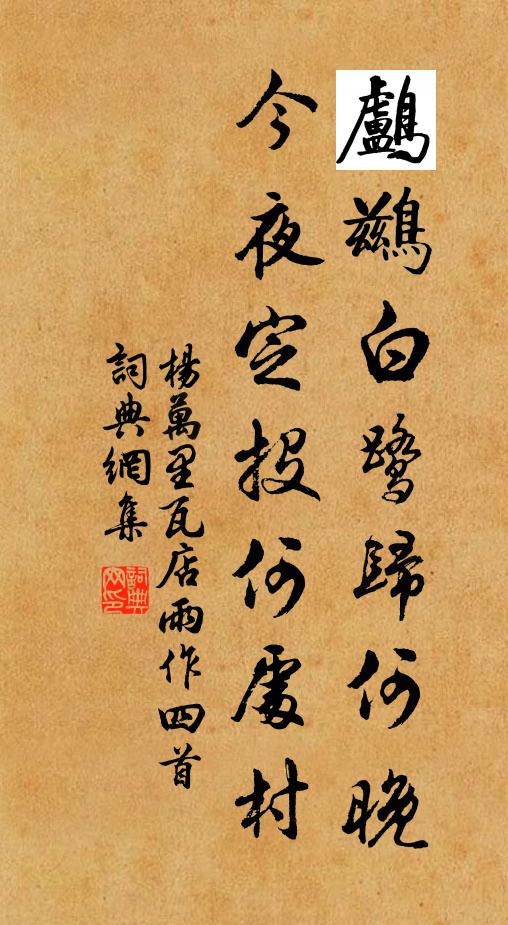 鸕鶿白鷺歸何晚
今夜定投何處村
楊萬里瓦店雨作四首
詞典網集
詞典网印